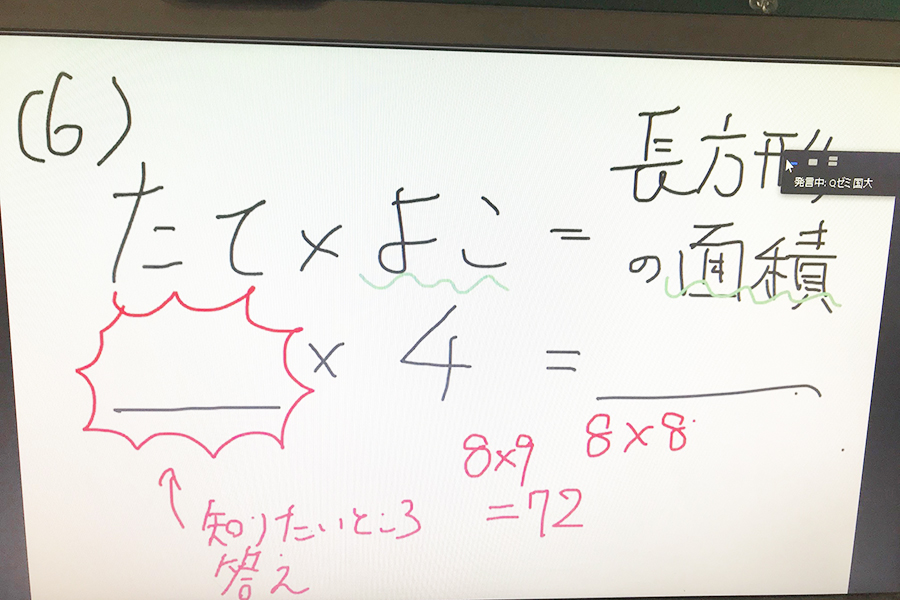 (6)
たて×よこ=長方形
の面積
×4=
8×9
=72
8×8
知りたいところ
答え
発言中: Qゼミ国大